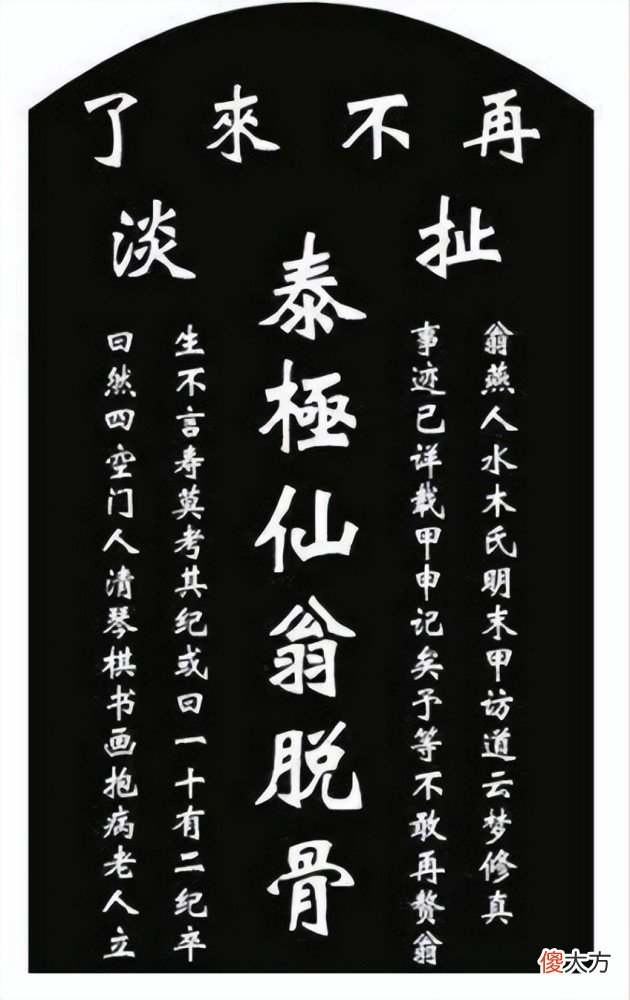 再不來了
扯淡
泰極仙翁脱骨
翁燕人水木氏明末甲访道云梦修真
事迹已详载甲申记矣予等不敢再赘翁
生不言寿莫考其纪或曰一十有二纪卒
曰然四空门人清琴棋书画抱病老人立
傻大方